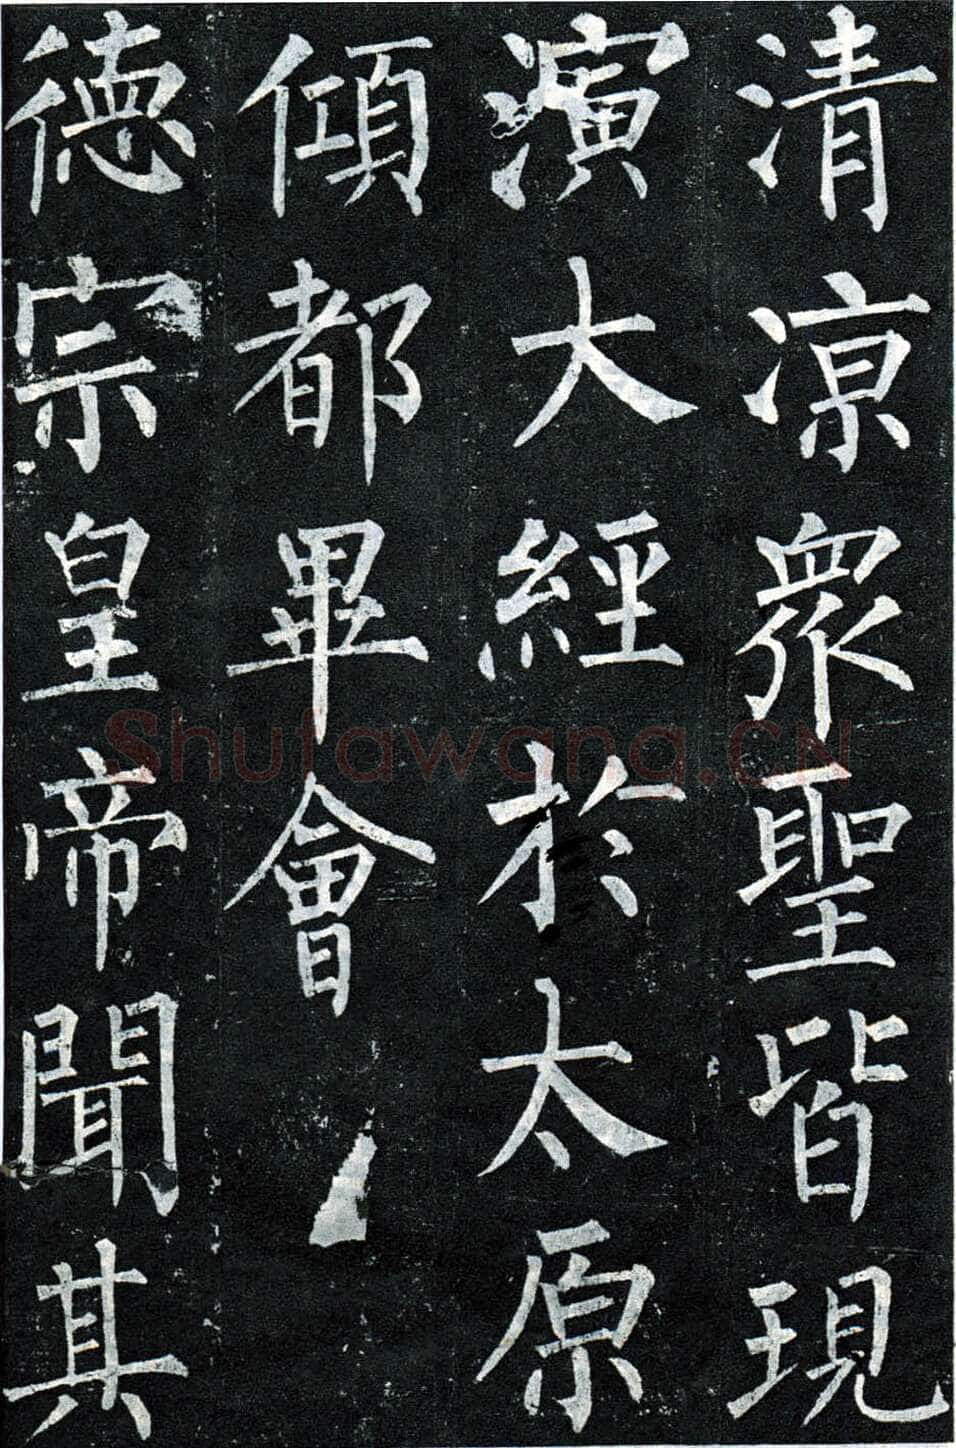 清凉衆聖皆現
演大經於太原
傾都畢會
德宗皇帝聞其
Shufawang.CN